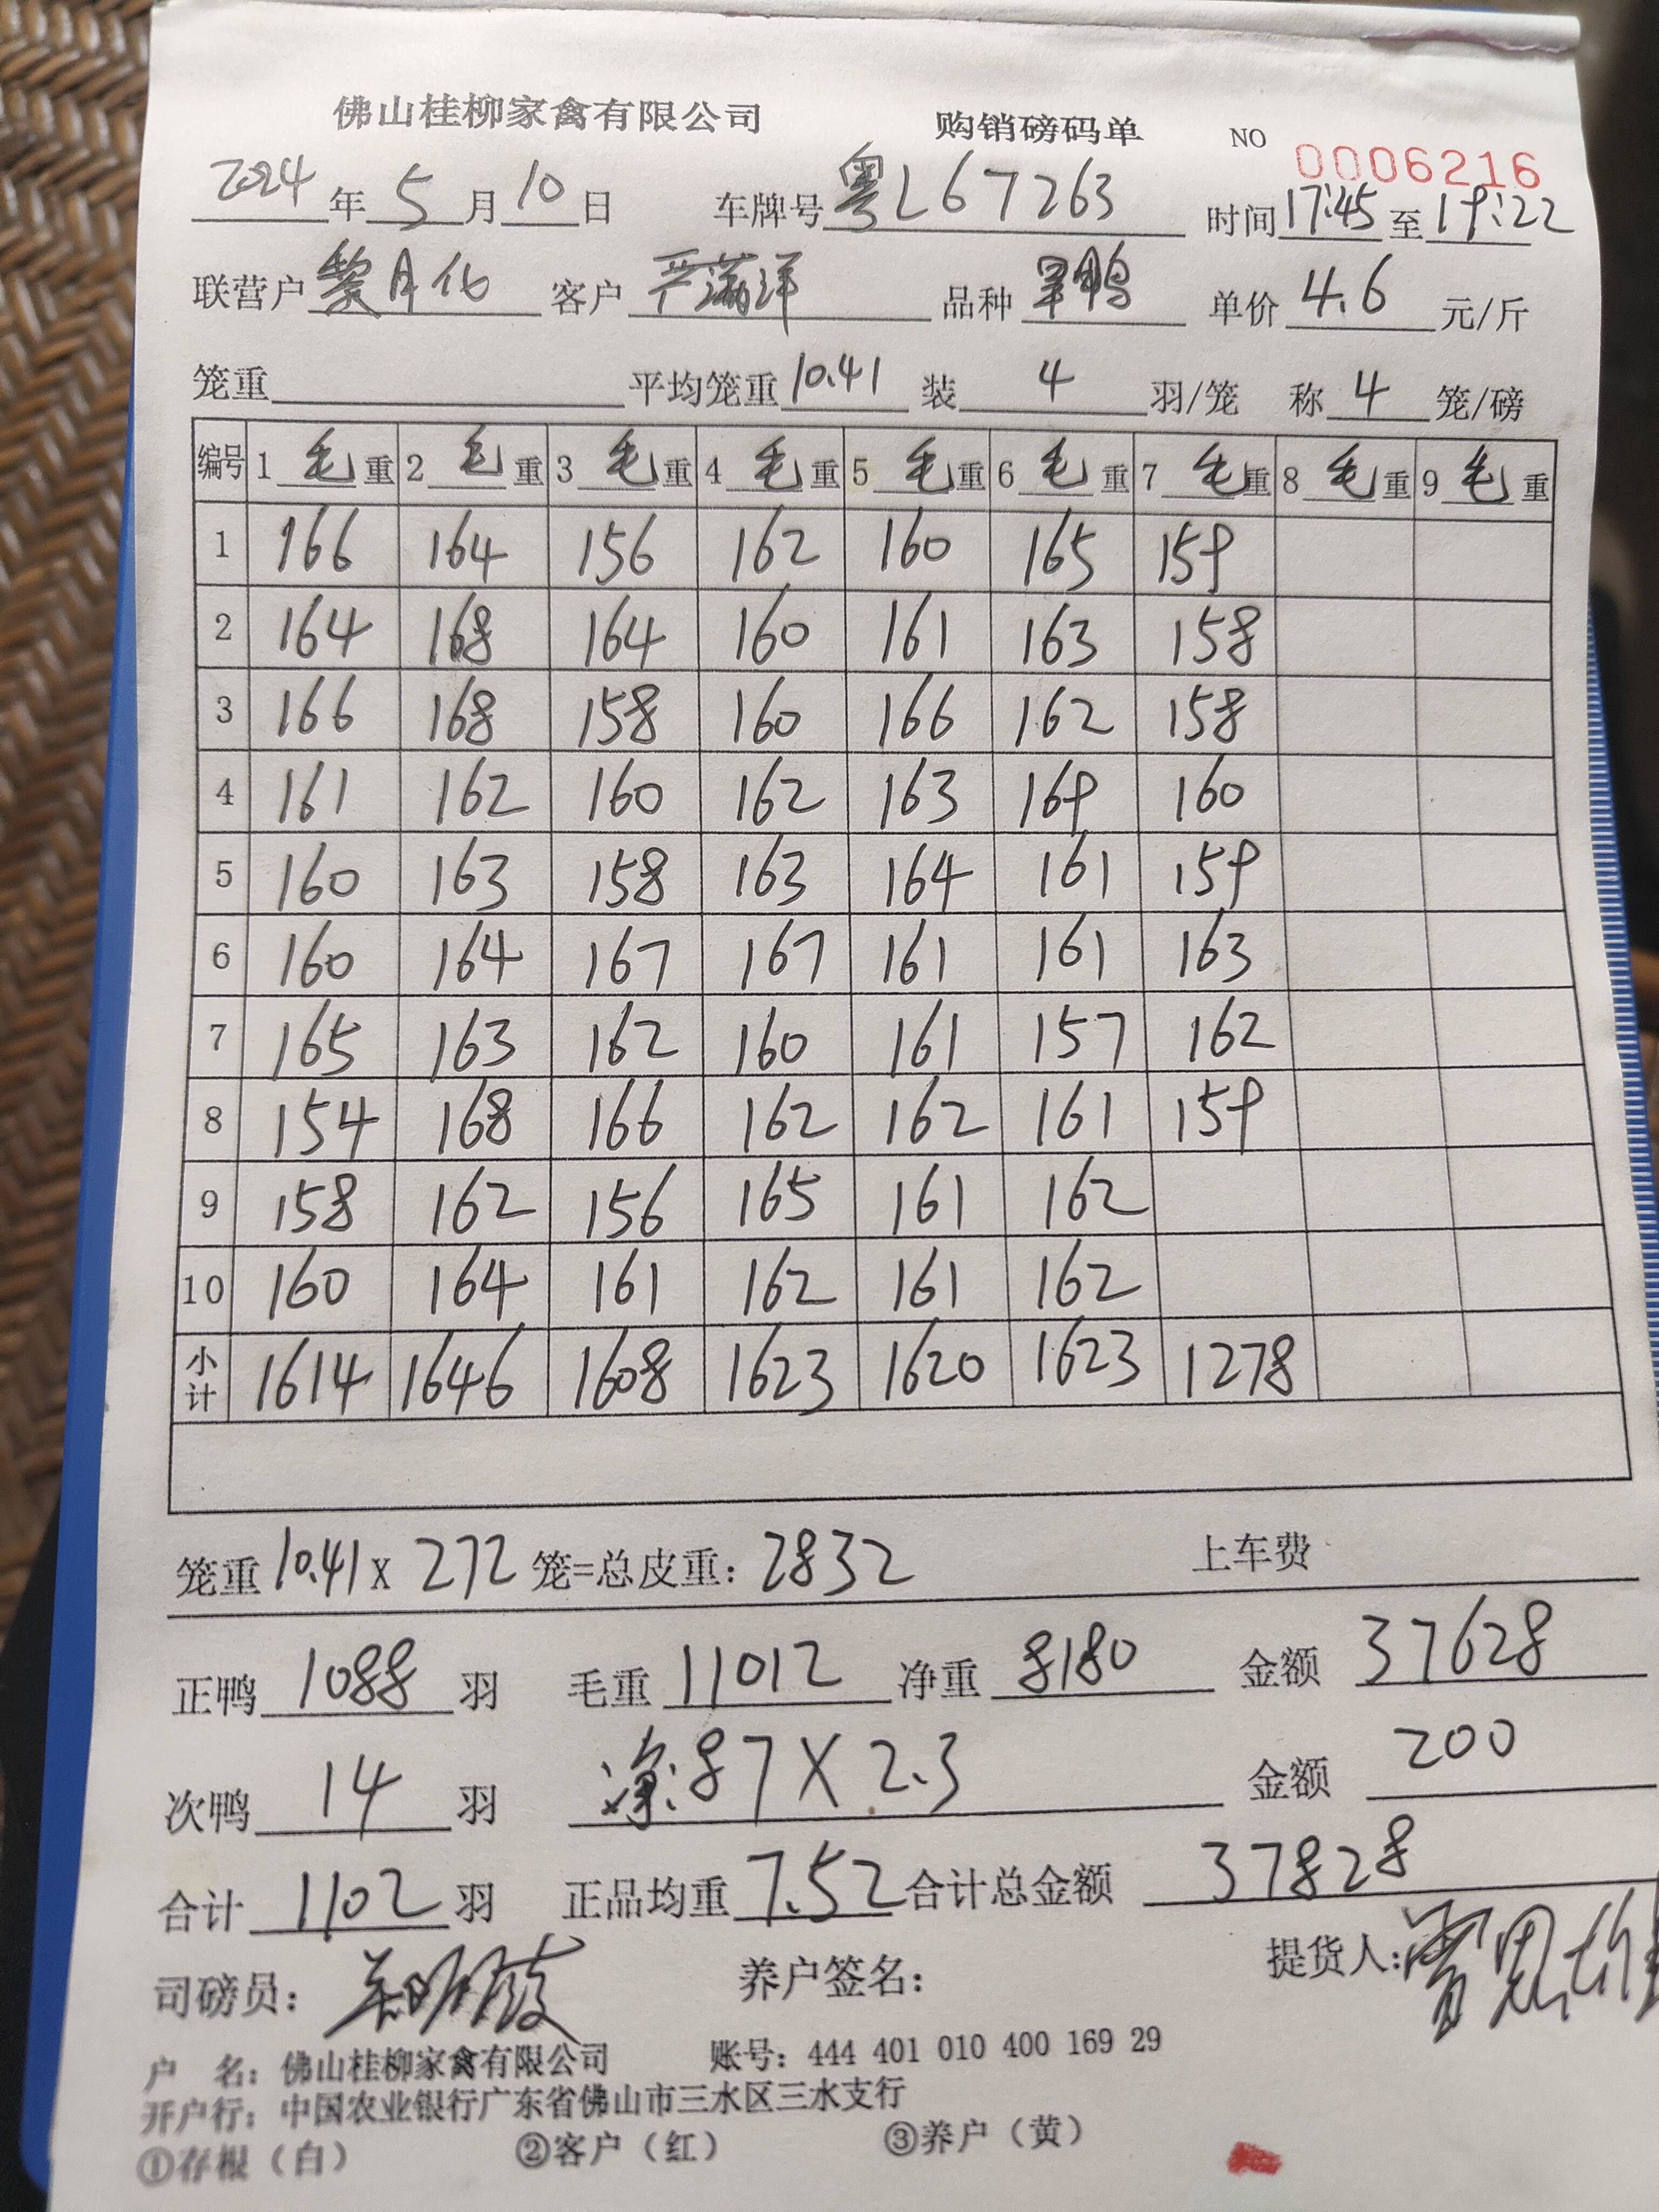 佛山桂柳家禽有限公司 购销磅码单 NO 0006216
2024年5月10日 车牌号粤L67263 时间17:45至19:22
联营户黎月化 客户严满洋 品种 单价4.6元/斤
笼重 平均笼重10.41 装4羽/笼 称4笼/磅
编号 1毛重 2毛重 3毛重 4毛重 5毛重 6毛重 7毛重 8毛重 9毛重
1 166 164 156 162 160 165 159
2 164 168 164 160 161 163 158
3 166 168 158 160 166 162 158
4 161 162 160 162 163 169 160
5 160 163 158 163 164 161 159
6 160 164 167 167 161 161 163
7 165 163 162 160 161 157 162
8 154 168 166 162 162 161 159
9 158 162 156 165 161 162
10 160 164 161 162 161 162
小计 1614 1646 1608 1623 1620 1623 1278
笼重10.41X272笼=总皮重：2832 上车费
正鸭1088羽 毛重11012 净重8180 金额37628
次鸭14羽 净:87X2.3 金额200
合计1102羽 正品均重7.52 合计总金额37828
司磅员： 养户签名： 提货人：
户 名：佛山桂柳家禽有限公司 账号：444 401 010 400 169 29
开户行：中国农业银行广东省佛山市三水区三水支行
①存根（白） ②客户（红） ③养户（黄）